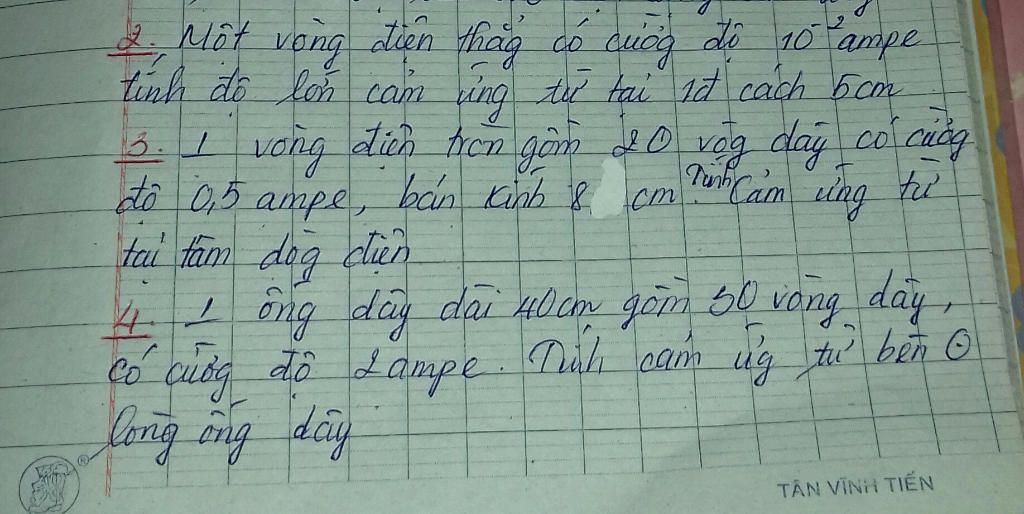 2. Một vòng điện thẳg có cuờg độ 10⁻² ampe
tính độ lớn cảm ứng từ tại 1đ cách 5cm
3. 1 vòng điện tròn gồm 20 vòg dây có cuờg
độ 0,5 ampe, bán kính 8 cm. Tính Cảm ứng từ
tại tâm dòg điện
4. 1 ống dây dài 40cm gồm 50 vòng dây,
có cuờg độ 2 ampe. Tính cảm ứg từ bên
lòng ống dây
®
TÂN VĨNH TIẾN